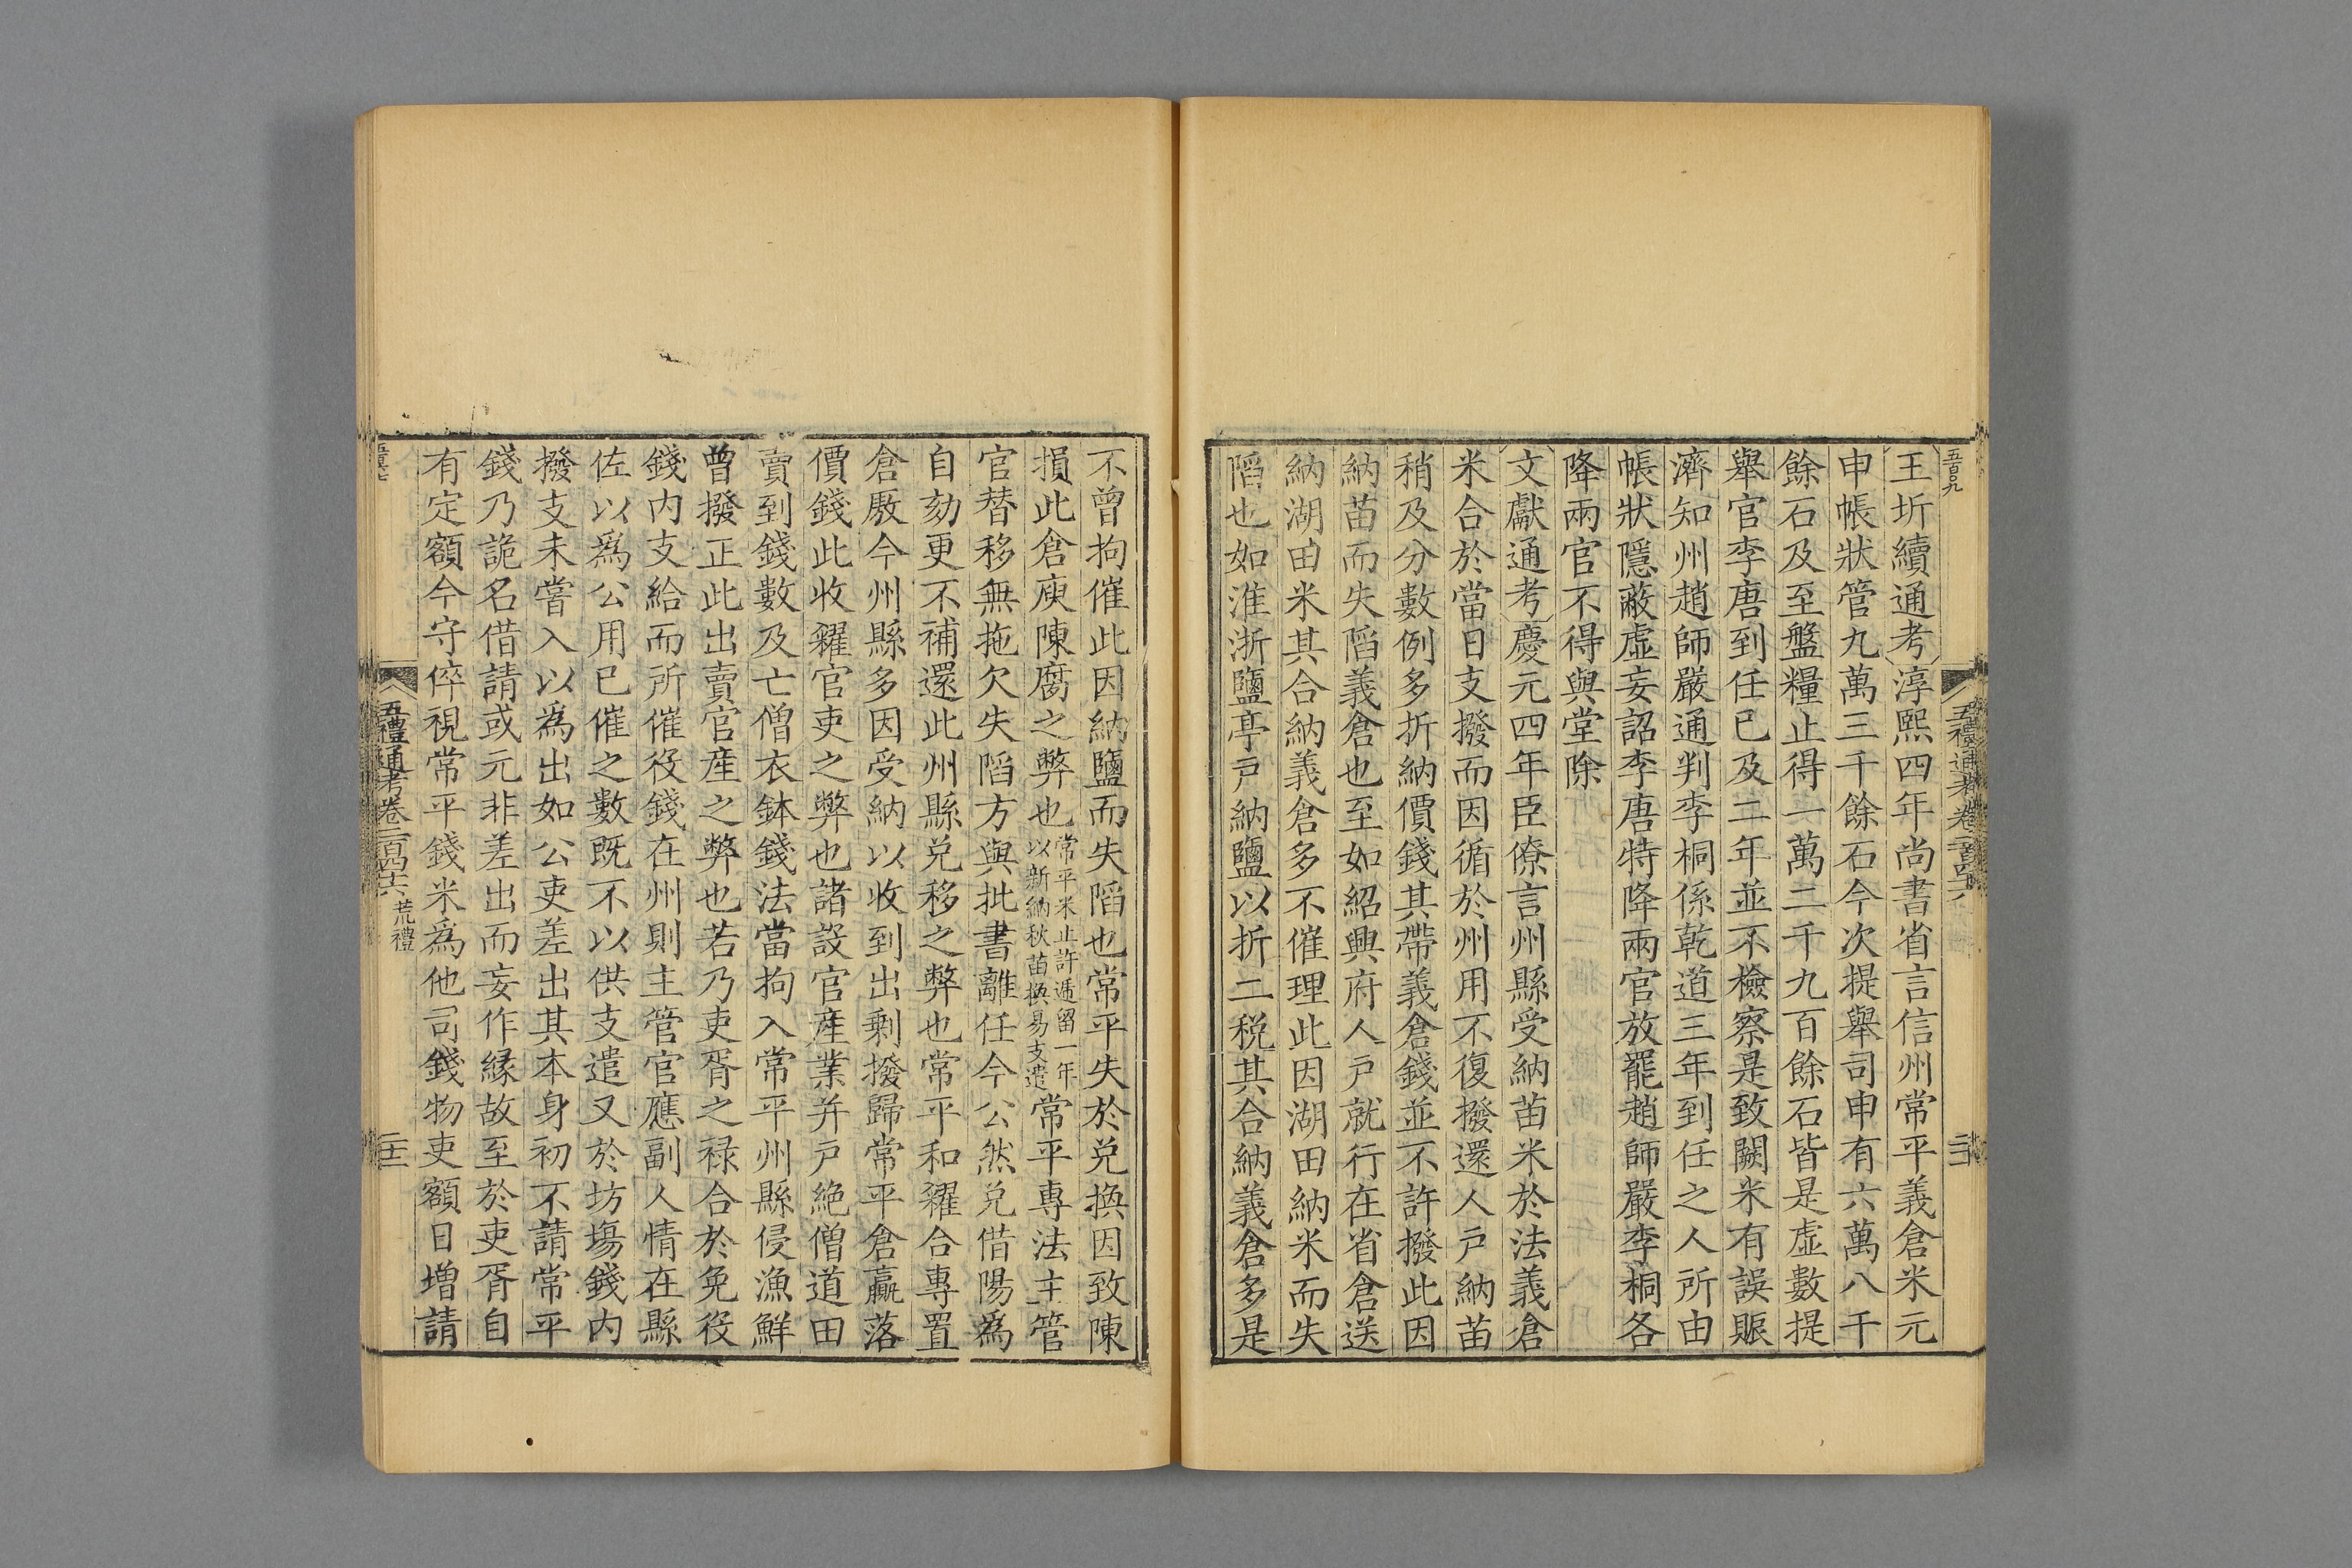 王圻續通考淳熙四年尚書省言信州常平義倉米元
申帳狀管九萬三千餘石今次提舉司申有六萬八千
餘石及至盤糧止得一萬二千九百餘石皆是虛數提
舉官李唐到任已及二年並不檢察是致闕米有誤賑
濟知州趙師嚴通判李桐係乾道三年到任之人所由
帳狀隱蔽虛妄詔李唐特降兩官放罷趙師嚴李桐各
降兩官不得與堂除
文獻通考慶元四年臣僚言州縣受納苗米於法義倉
米合於當日支撥而因循於州用不復撥還人戶納苗
稍及分數例多折納價錢其帶義倉錢並不許撥此因
納苗而失陷義倉也至如紹興府人戶就行在省倉送
納湖田米其合納義倉多不催理此因湖田納米而失
陷也如淮浙鹽亭戶納鹽以折二稅其合納義倉多是
不曾拘催此因納鹽而失陷也常平失於兌換因致陳
損此倉庾陳腐之弊也常平米止許遞留一年以新納秋苗換易支遣常平專法主管
官替移無拖欠失陷方與批書離任今公然兌借陽為
自劾更不補還此州縣兌移之弊也常平和糴合專置
倉廒今州縣多因受納以收到出剩撥歸常平倉贏落
價錢此收糴官吏之弊也諸設官產業并戶絕僧道田
賣到錢數及亡僧衣鉢錢法當拘入常平州縣侵漁鮮
曾撥正此出賣官產之弊也若乃吏胥之祿合於免役
錢內支給而所催役錢在州則主管官應副人情在縣
佐以為公用已催之數既不以供支遣又於坊場錢內
撥支未嘗入以為出如公吏差出其本身初不請常平
錢乃詭名借請或元非差出而妄作緣故至於吏胥自
有定額今守倅視常平錢米為他司錢物吏額日增請
五禮通考卷二百四十六 荒禮